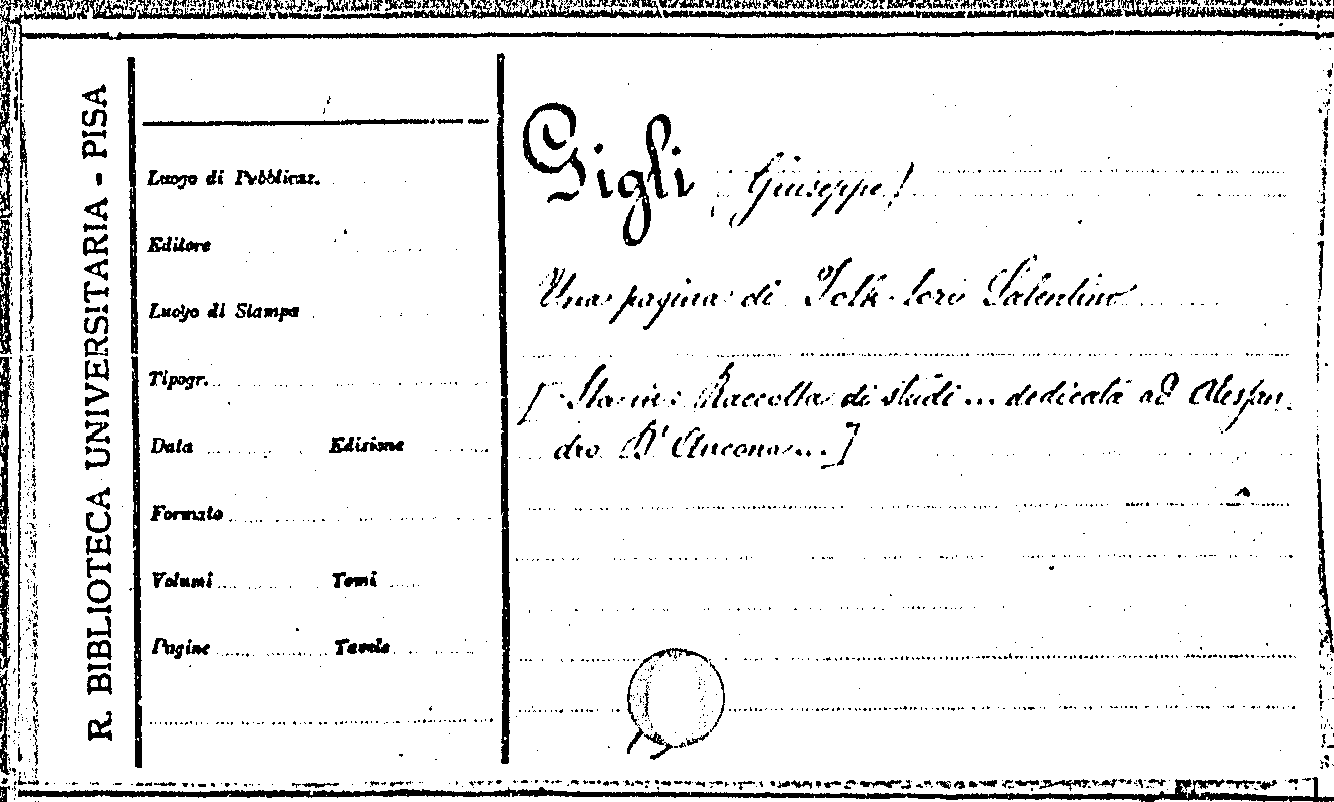 R. BIBLIOTECA UNIVERSITARIA - PISA
Luogo di Pubblicaz.
Editore
Luogo di Stampa
Tipogr.
Data Edizione
Formato
Volumi Tomi
Pagine Tavole
Gigli (Giuseppe)
Una pagina di Folk-lore Salentino
[Sta in: Raccolta di studi ... dedicata ad Alessan-
dro D'Ancona ...]